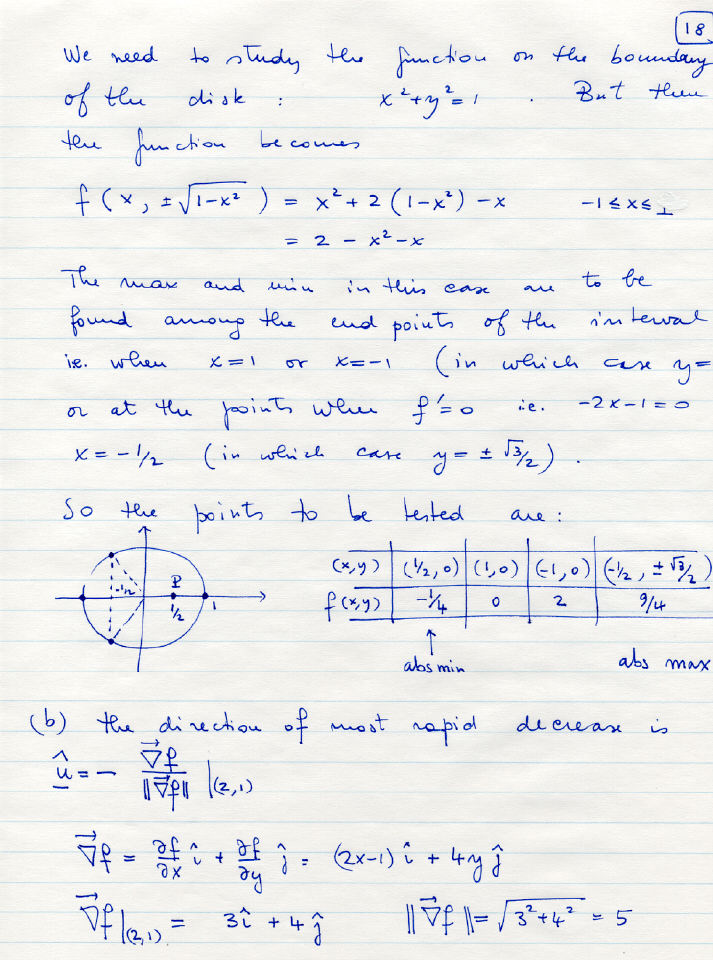 18
We need to study the function on the boundary
of the disk : x² + y² = 1 . But then
the function becomes
f(x, ±√(1-x²)) = x² + 2(1-x²) - x -1 ≤ x ≤ 1
= 2 - x² - x
The max and min in this case are to be
found among the end points of the interval
ie. when x=1 or x=-1 (in which case y=
or at the points when f'=0 i.e. -2x-1=0
x = -1/2 (in which case y = ± √3/2) .
So the points to be tested are :
-1/2 P 1/2 1
(x,y) | (1/2, 0) | (1,0) | (-1,0) | (-1/2, ± √3/2)
f(x,y) | -1/4 | 0 | 2 | 9/4
↑
abs min abs max
(b) the direction of most rapid decrease is
û = - ∇⃗f / ||∇⃗f|| |(2,1)
∇⃗f = ∂f/∂x î + ∂f/∂y ĵ = (2x-1) î + 4y ĵ
∇⃗f|(2,1) = 3î + 4ĵ ||∇⃗f|| = √(3²+4²) = 5